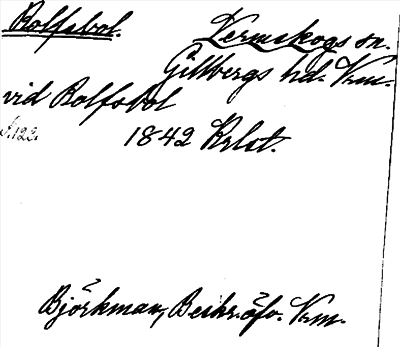 Rolfsbol. Vermskogs sn.
Gillbergs hd. Vrm.
vid Rolfsbol
S. 122. 1842 Krlst.
Björkman, Beskr. öfv. Vrm.